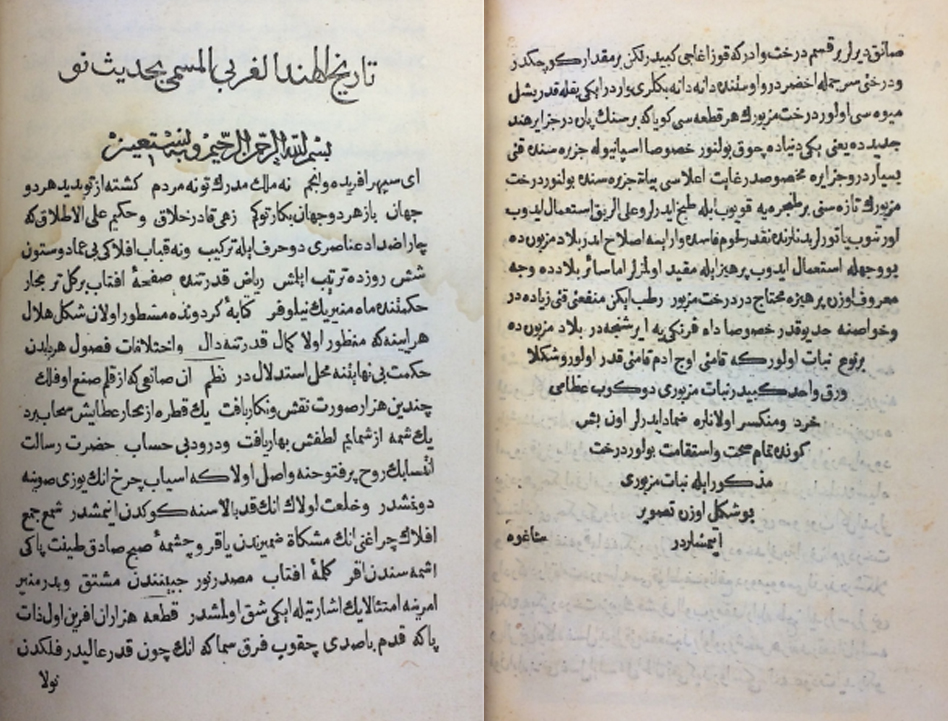 تاريخ الهند الغربى المسمى بحديث نو
بسم الله الرحمن الرحيم وبه نستعين
اى سپهر افريده وانجم نه ملك مدرك تو نه مردم كشته از تو پديد هر دو
جهان باز هر دو جهان بكار توكم زهى قادر خلاق وحكيم على الاطلاق كه
چار اضداد عناصرى دو حرف ايله تركيب ونه قباب افلاكى بى عماد وستون
شش روزده ترتيب ايلمش رياض قدرتنده صفحهٔ افتاب بركل تر بحار
حكمتنده ماه منير بيك نيلوفر كتابهٔ كردونده مسطور اولان شكل هلال
هراينه كه منظور اولا كمال قدرتنه دال واختلافات فصول هربلدن
حكمت بى نهايتنه محل استدلال در نظم ان صانعى كه از قلم صنع او فلك
چندين هزار صورت نقش ونكار يافت يك قطره از بحار عطايش سحاب برد
يك شمه از شمايم لطفش بهار يافت ودرود بى حساب حضرت رسالت
انتسابك روح پرفتوحنه واصل اولا كه اسياب چرخ انك يوزى صوينه
دونمشدر وخلعت لولاك انك قد بالاسنه كوكدن اينمشدر شمع جمع
افلاك چراغنى انك مشكاة ضميرندن ياقر وچشمهٔ صبح صادق طينت پاكى
اشمه سندن اقر كلمهٔ افتاب مصدر نور جبيننندن مشتق وبدر منير
امرينه امتثالا بيك اشارتيله ايكى شق اولمشدر قطعه هزاران افرين اول ذات
پاكه قدم باصدى چقوب فرق سماكه انك چون قدر عاليدر فلكدن
نولا
صانق ديرلر بر قسم درخت واردركه قوز اغاجى كبيدر لكن بر مقدار كوچكدر
ودرختى سر جمله اخضر در واوستنده دانه دانه بكلرى واردر ايكى بقله قدر يشل
ميوه سى اولور درخت مزبورك هر قطعه سى كويا كه بر سنك پاره در جزاير هند
جديده ده يعنى يكى دنياده چوق بولنور خصوصا اسپانيوله جزيره سنده قتى
بسيار در وجزايره مخصوصدر غايت اعلاسى بياتة جزيره سنده بولنور درخت
مزبورك تازه سنى بر طنجره يه قويوب ايله طبخ ايدرلر وعلى الريق استعمال ايدوب
اورتنوب ياتورلر بدنلرنده نقدر لحوم فاسده وار ايسه اصلاح ايدر بلاد مزبوره ده
بو وجهله استعمال ايدوب پرهيز ايله مقيد اولمزلر اما سائر بلادده وجه
معروف اوزره پرهيزه محتاجدر درخت مزبور رطب ايكن منفعتى قتى زياده در
وخواصنه حد يوقدر خصوصا داه فرنكى يه ايرشيجه در بلاد مزبوره ده
بر نوع نبات اولور كه قامتى اوج ادم قامتى قدر اولور وشكلا
ورق واحد كبيدر نبات مزبورى دوكوب عظامى
خرد ومنكسر اولانلره ضماد ايدرلر اون بش
كونده تمام صحت واستقامت بولور درخت
مذكور ايله نبات مزبورى
بو شكل اوزره تصوير
ايتمشلردر